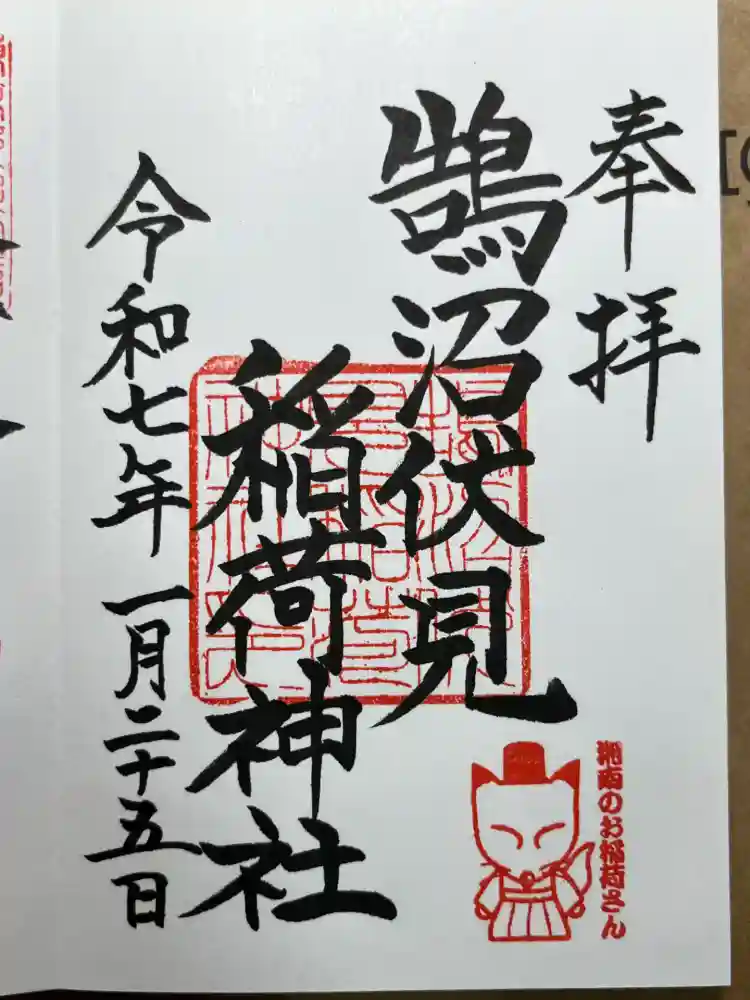 奉拝
鵠沼伏見
稲荷神社
令和七年一月二十五日
湘南のお稲荷さん